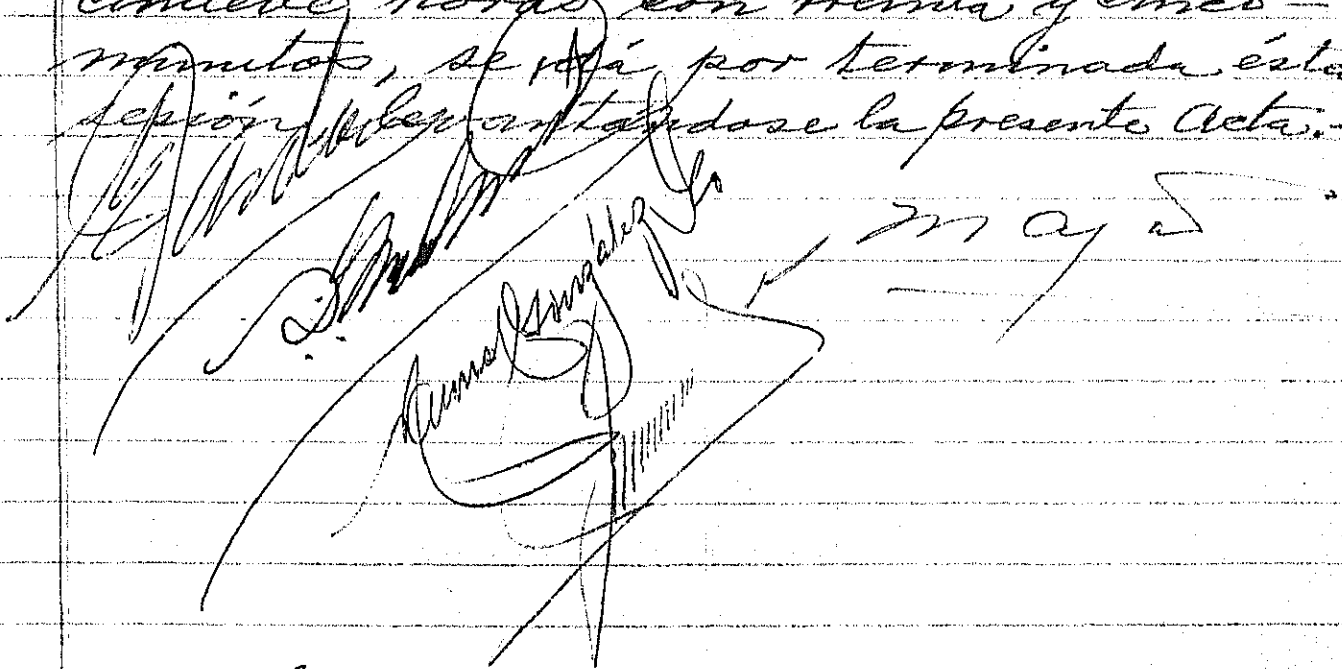 cinueve horas con treinta y cinco-
minutos, se dá por terminada ésta
sesión levantándose la presente Acta.-
González